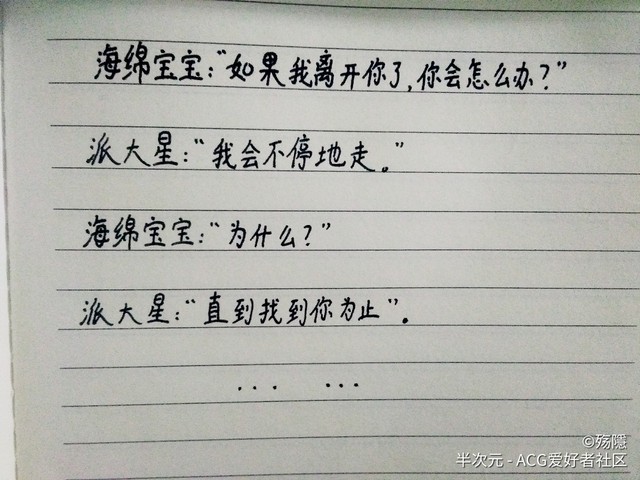 海绵宝宝:“如果我离开你了,你会怎么办?”
派大星:“我会不停地走。”
海绵宝宝:“为什么?”
派大星:“直到找到你为止”。
... ...
©殇隱
半次元 - ACG爱好者社区